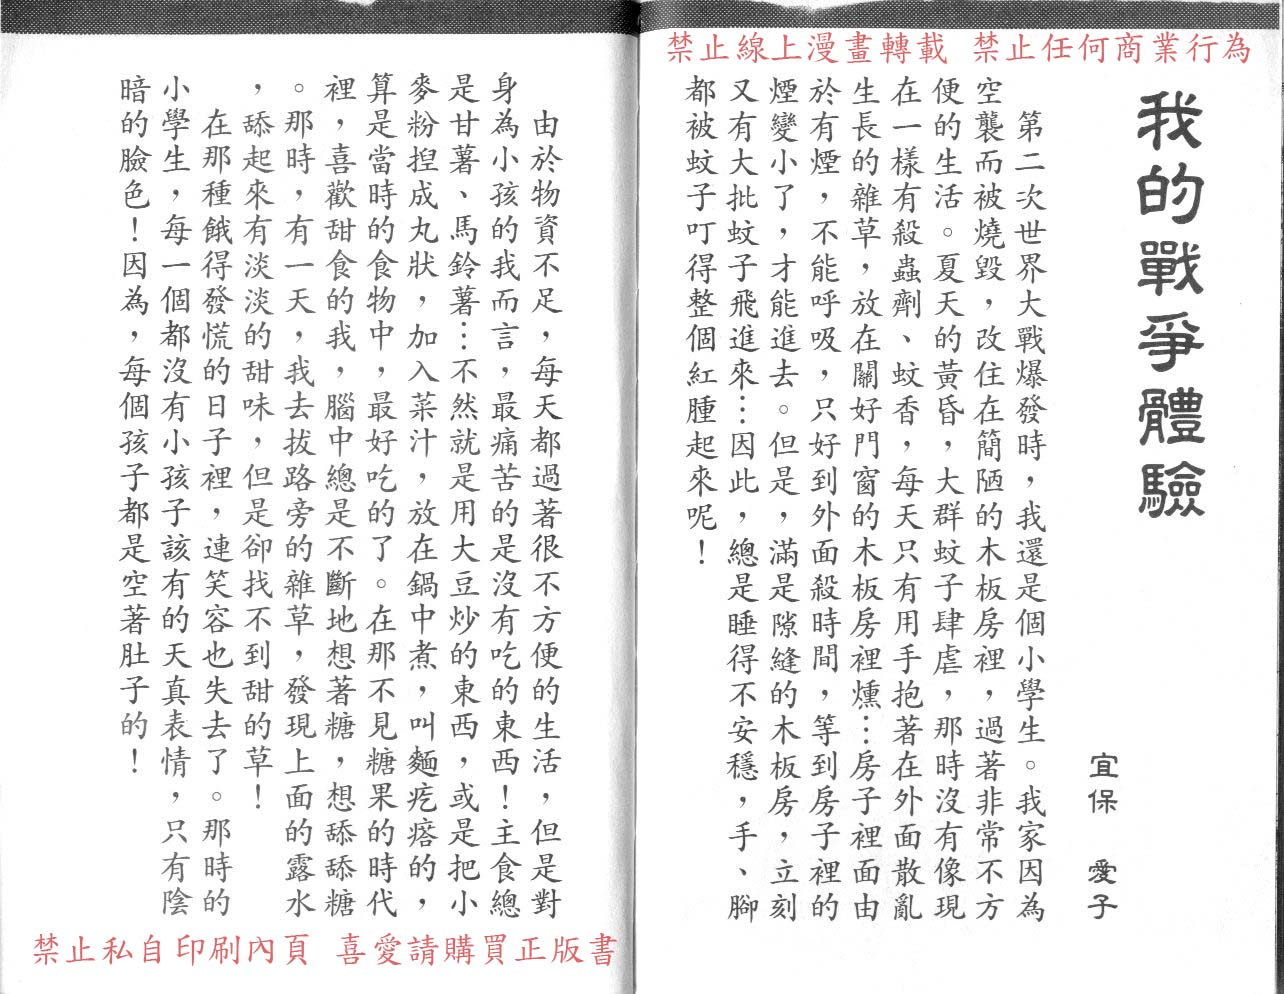 禁止線上漫畫轉載 禁止任何商業行為
我的戰爭體驗
宜保 愛子
第二次世界大戰爆發時，我還是個小學生。我家因為
空襲而被燒毀，改住在簡陋的木板房裡，過著非常不方
便的生活。夏天的黃昏，大群蚊子肆虐，那時沒有像現
在一樣有殺蟲劑、蚊香，每天只有用手抱著在外面散亂
生長的雜草，放在關好門窗的木板房裡燻…房子裡面由
於有煙，不能呼吸，只好到外面殺時間，等到房子裡的
煙變小了，才能進去。但是，滿是隙縫的木板房，立刻
又有大批蚊子飛進來…因此，總是睡得不安穩，手、腳
都被蚊子叮得整個紅腫起來呢！
由於物資不足，每天都過著很不方便的生活，但是對
身為小孩的我而言，最痛苦的是沒有吃的東西！主食總
是甘薯、馬鈴薯…不然就是用大豆炒的東西，或是把小
麥粉揑成丸狀，加入菜汁，放在鍋中煮，叫麵疙瘩的，
算是當時的食物中，最好吃的了。在那不見糖果的時代
裡，喜歡甜食的我，腦中總是不斷地想著糖，想舔舔糖
。那時，有一天，我去拔路旁的雜草，發現上面的露水
，舔起來有淡淡的甜味，但是卻找不到甜的草！
在那種餓得發慌的日子裡，連笑容也失去了。那時的
小學生，每一個都沒有小孩子該有的天真表情，只有陰
暗的臉色！因為，每個孩子都是空著肚子的！
禁止私自印刷內頁 喜愛請購買正版書